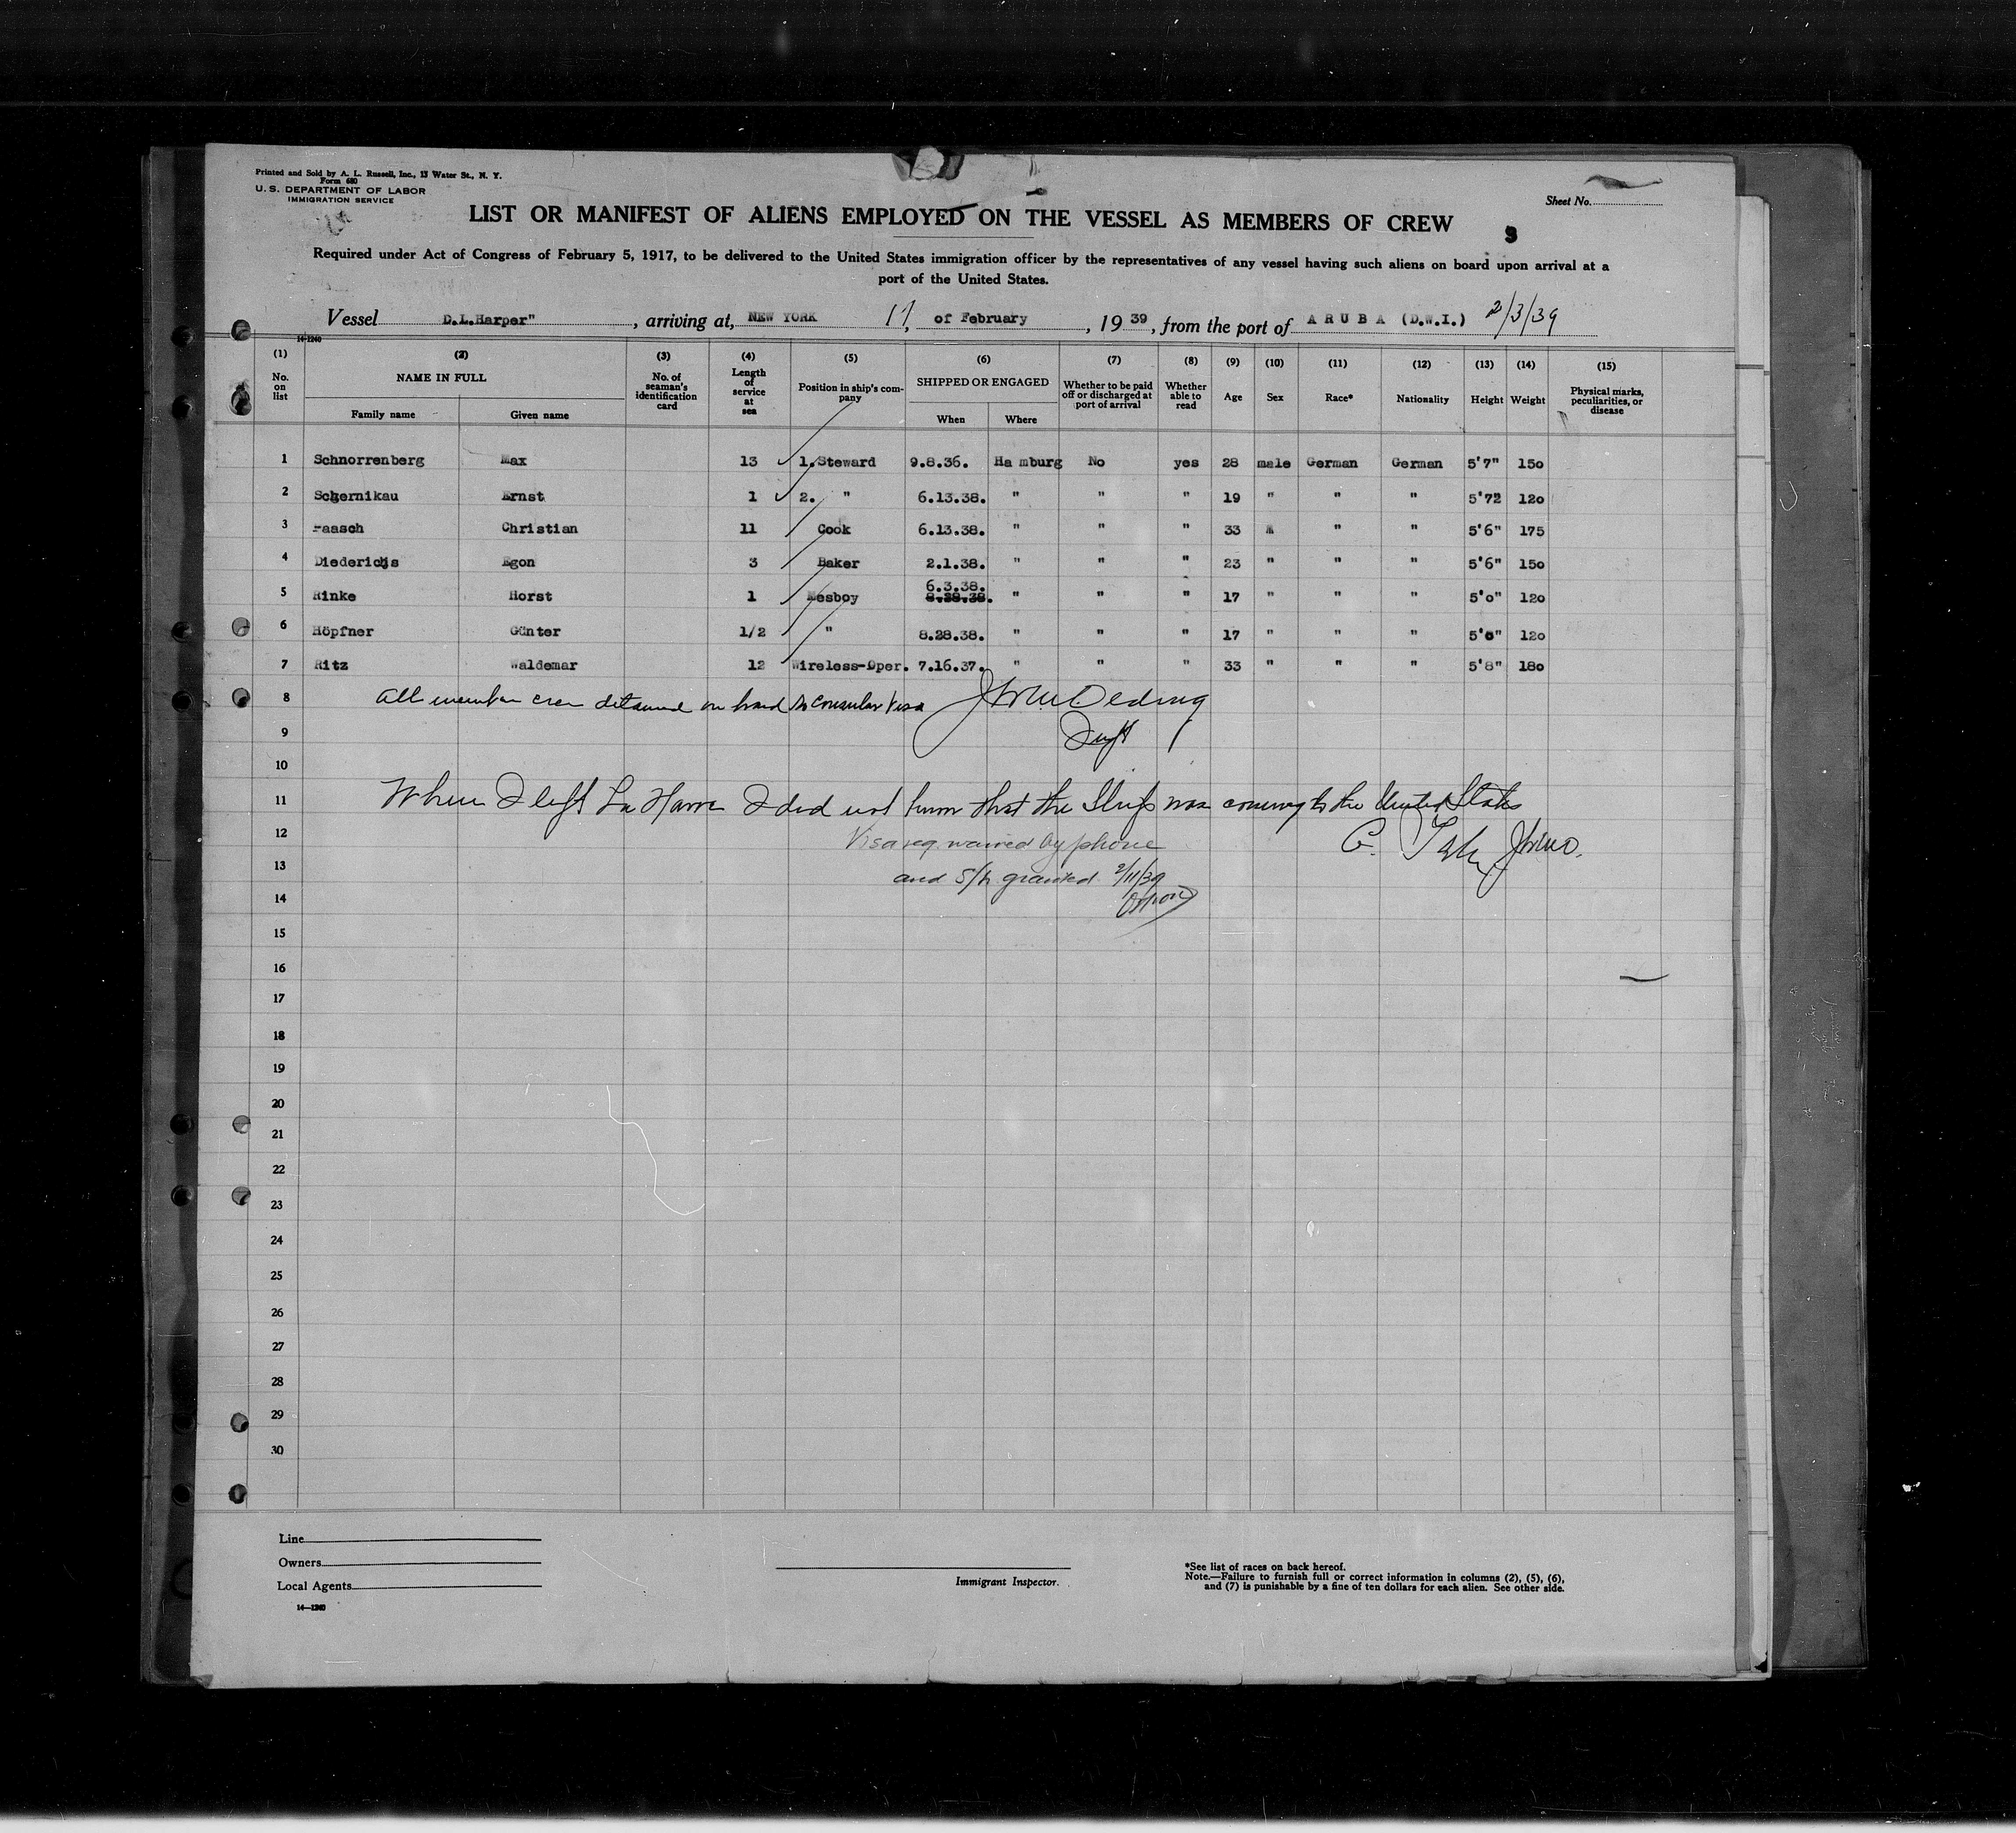 Printed and Sold by A. L. Russell, Inc., 13 Water St., N. Y.
Form 680
U. S. DEPARTMENT OF LABOR
IMMIGRATION SERVICE
Sheet No.
LIST OR MANIFEST OF ALIENS EMPLOYED ON THE VESSEL AS MEMBERS OF CREW
3
Required under Act of Congress of February 5, 1917, to be delivered to the United States immigration officer by the representatives of any vessel having such aliens on board upon arrival at a
port of the United States.
Vessel D.L.Harper", arriving at, NEW YORK 11, of February, 1939, from the port of ARUBA (D.W.I.) 2/3/39
14-1240
(1) (2) (3) (4) (5) (6) (7) (8) (9) (10) (11) (12) (13) (14) (15)
No. on list NAME IN FULL Family name Given name No. of seaman's identification card Length of service at sea Position in ship's company SHIPPED OR ENGAGED When Where Whether to be paid off or discharged at port of arrival Whether able to read Age Sex Race* Nationality Height Weight Physical marks, peculiarities, or disease
1 Schnorrenberg Max 13 1.Steward 9.8.36. Hamburg No yes 28 male German German 5'7" 150
2 Schernikau Ernst 1 2. " 6.13.38. " " " 19 " " " 5'72 120
3 Faasch Christian 11 Cook 6.13.38. " " " 33 " " " 5'6" 175
4 Diederichs Egon 3 Baker 2.1.38. " " " 23 " " " 5'6" 150
5 Rinke Horst 1 Mesboy 6.3.38. 8.28.38. " " " 17 " " " 5'0" 120
6 Höpfner Günter 1/2 " 8.28.38. " " " 17 " " " 5'6" 120
7 Ritz Waldemar 12 Wireless-Oper. 7.16.37. " " " 33 " " " 5'8" 180
8 All member crew detained on board no consular visa
9
10
11 When I left La Havre I did not know that the Ship was coming to the United States
12 Visa req waived by phone
13 and S/L granted 2/11/39
14
15
16
17
18
19
20
21
22
23
24
25
26
27
28
29
30
Line
Owners
Local Agents
14—1240
Immigrant Inspector.
*See list of races on back hereof.
Note.—Failure to furnish full or correct information in columns (2), (5), (6),
and (7) is punishable by a fine of ten dollars for each alien. See other side.